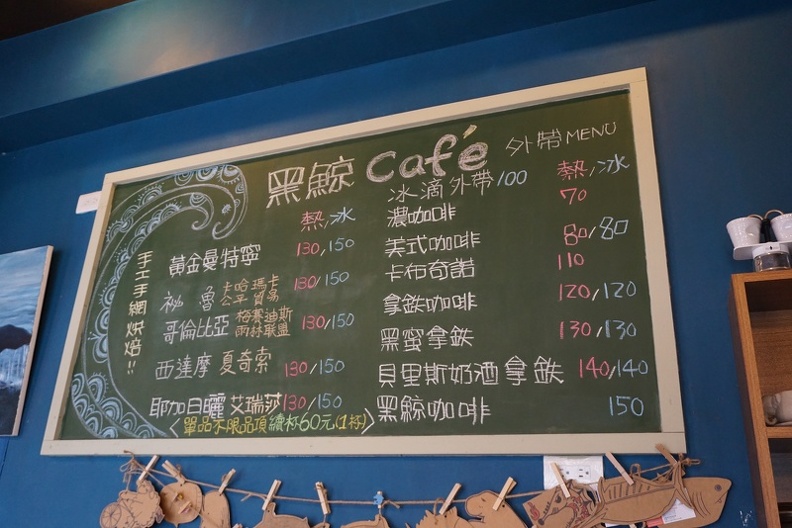 黑鯨 café 外帶 MENU
手工手網烘焙!!
熱/冰
黃金曼特寧 130/150
祕魯 卡哈瑪卡 公平貿易 130/150
哥倫比亞 梅賽迪斯 雨林联盟 130/150
西達摩 夏奇索 130/150
耶加日曬 艾瑞莎 130/150
〈單品不限品項續杯60元(1杯)〉
冰滴外帶/100 熱/冰
濃咖啡 70
美式咖啡 80/80
卡布奇諾 110
拿鉄咖啡 120/120
黑蜜拿鉄 130/130
貝里斯奶酒拿鉄 140/140
黑鯨咖啡 150